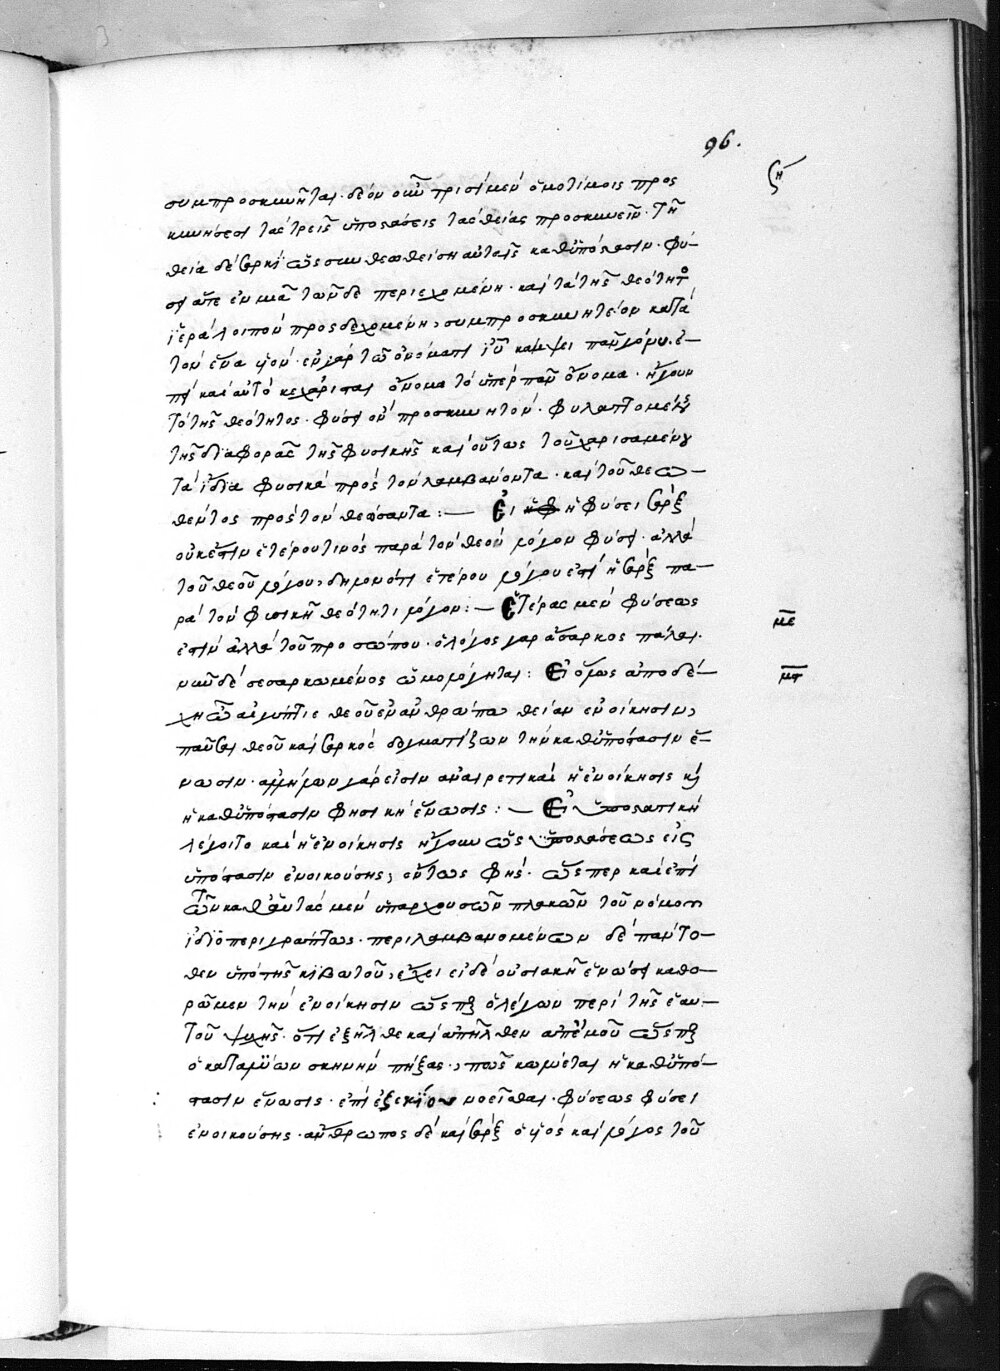 96.
ζη
συμπροσκυνῆται. δέον οὖν τρισὶ μὲν ὁμοτίμοις προσ
κυνήσεσι τὰς τρεῖς ὑποστάσεις τὰς θείας προσκυνεῖν. τῇ
θεία δὲ σαρκὶ ὡς συνθεωθείση αὐταῖς καθ' ὑπόστασιν. φύ–
σει ἅτε ἐν μιᾷ τῶν δε περιεχομένη. καὶ τὰ τῆς θεότητος
γέρα λοιπὸν προσδεχομένη, συμπροσκυνητέον κατὰ
τὸν ἕνα υἱόν. ἐν γὰρ τῶ ὀνόματι ιυ κάμψει πᾶν γόνυ. ἐ–
πεὶ καὶ αὐτὸ κεχάρισται ὄνομα τὸ ὑπὲρ πᾶν ὄνομα. ἤγουν
τὸ τῆς θεότητος. φύσει ὂν προσκυνητόν. φυλαττομένης
τῆς διαφορᾶς τῆς φυσικῆς καὶ οὕτως τοῦ χαρισαμένου
τὰ ἴδια φυσικὰ πρὸς τὸν λαμβάνοντα. καὶ τοῦ θεω–
θέντος πρὸς τὸν θεώσαντα: — Εἰ ἡ φύσει σὰρξ
οὐκ ἔστιν ἑτέρου τινὸς παρὰ τὸν θεὸν λόγον φύσει. ἀλλὰ
τοῦ θεοῦ λόγου, δηλονότι ἑτέρου λόγου ἐστὶ ἡ σὰρξ πα–
ρὰ τὸν φυσικῆ θεότητι λόγον: — Ἑτέρας μὲν φύσεως
ἐστὶν ἀλλὰ τοῦ προσώπου. ὁ λόγος γὰρ ἄσαρκος πάλαι.
νῦν δὲ σεσαρκωμένος ὡμολόγηται: Εἰ ὅμως ἀποδέ–
χη ὦ αἰγύπτιε θεοῦ ἐν ἀνθρώπω, θείαν ἐνοίκησιν,
παῦσαι θεοῦ καὶ σαρκὸς δογματίζων τὴν καθ' ὑπόστασιν ἕ–
νωσιν. ἀλλήλων γάρ εἰσιν ἀναιρετικαὶ ἡ ἐνοίκησις καὶ
ἡ καθ' ὑπόστασιν φυσικὴ ἕνωσις: — Εἰ ὑποστατικὴ
λέγοιτο καὶ ἡ ἐνοίκησις ἤγουν ὡς ὑποστάσεως εἰς
ὑπόστασιν ἐνοικούσης, οὕτως φής. ὥσπερ καὶ ἐπὶ
τῶν καθ' ἑαυτὰς μὲν ὑπαρχουσῶν πλακῶν τοῦ νόμου
ἰδιοπεριγράπτως. περιλαμβανομένων δὲ πάντο–
θεν ὑπὸ τῆς κιβωτοῦ, ἔχει εἰ δὲ οὐσιακῆ ἑνώσει καθο–
ρῶμεν τὴν ἐνοίκησιν ὥσπερ ὁ λέγων περὶ τῆς ἑαυ–
τοῦ ψυχῆς. ὅτι ἐξῆλθε καὶ ἀπῆλθεν ἀπ' ἐμοῦ ὥσπερ
ὁ καταλύων σκηνὴν πήξας. πῶς κωλύεται ἡ καθ' ὑπό–
στασιν ἕνωσις. ἐπὶ ἐξ νοεῖσθαι. φύσεως φύσει
ἐνοικούσης. ἄνθρωπος δὲ καὶ σὰρξ ὁ υἱὸς καὶ λόγος τοῦ
με
μστ